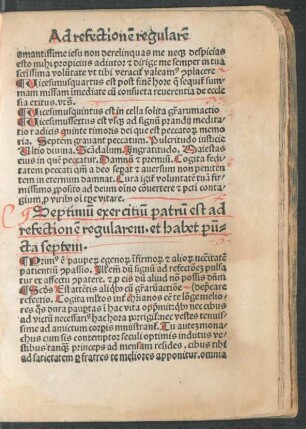 Ad refectionē regularē
amantissime iesu non derelinquas me neqȝ despicias
esto mihi propicius adiutor ⁊ dirige me semper in tua
sctissima volūtate vt tibi veraciƒ valeam' cōplacere
Vicesimusquartus est post finē hore q̄ sequiƒ sum
mam missam imediate cū consueta reuerentia de eccle
sia exitus. vt s̄.
Vicesimusquintus est in cella solita gr̄arumactio
Vicesimussextus est vsqȝ ad signū prandij medita
tio radicis quinte timoris dei que est peccatoȝ mem
oria. Septem grauant peccatum. Pulcritudo iusticie
Ultio diuina. Scādalum Ingratitudo. Societas
eius in quē peccatur. Damnū ⁊ premiū. Cogita fedi
tatem peccati qm̄ a deo separat ⁊ auersum non peniten
tem in eternum damnat. Cura igiƒ voluntate tua fir
missimo ꝓposito ad deum oīno cōuertere ⁊ pcti conta
gium ꝓ virib' oī tpe vitare.
Septimū exercitiū patrū est ad
refectionem regularem. et habet pū
cta septem.
Prim' ē pauperȝ egenoȝ īfirmoȝ ⁊ alioȝ necītatē
patientiū ꝯpassio. Itē dū signū ad refectōȝ pulsa
tur ex affectu ꝯpatere
refectio. Cogita mltos inf christianos eē te lōge melio
res qui dura paupertas i hac vita
ad victū necessari' hac hora porrigiƒ nec vestes tenuis
sime ad amictum corpis ministrant. Tu autez mona
chus cum sis contemptor seculi optimis indutus ve
stibus tanqȝ princeps ad mensam resides. cibus tibi
ad satietatem ꝑ fratres te meliores apponitur. omnia